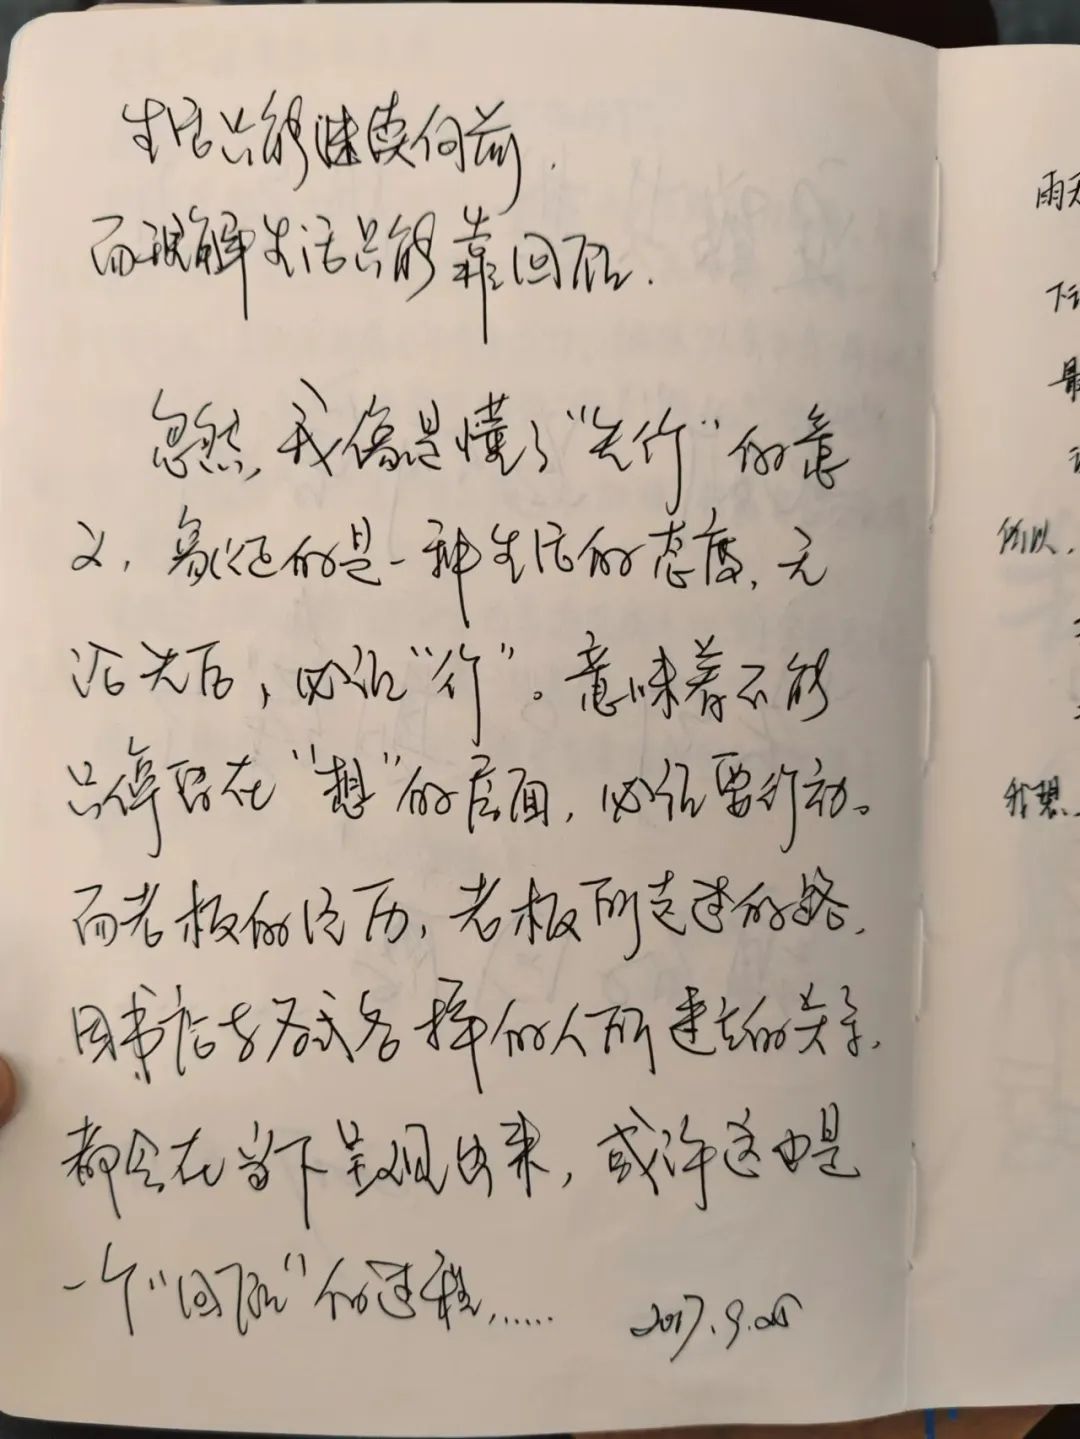 生活只能继续向前,
而理解生活只能靠回顾.
忽然,我像是懂了“先行”的意
义,象征的是一种生活的态度,无
论先后,必须“行”。意味着不能
只停留在“想”的层面,必须要行动。
而老板的经历,老板所走过的路,
因书店与各式各样的人所建立的关系,
都会在当下呈现出来,或许这也是
一个“回顾”的过程,……
2017.9.
雨天
下
最
所以,
我想,